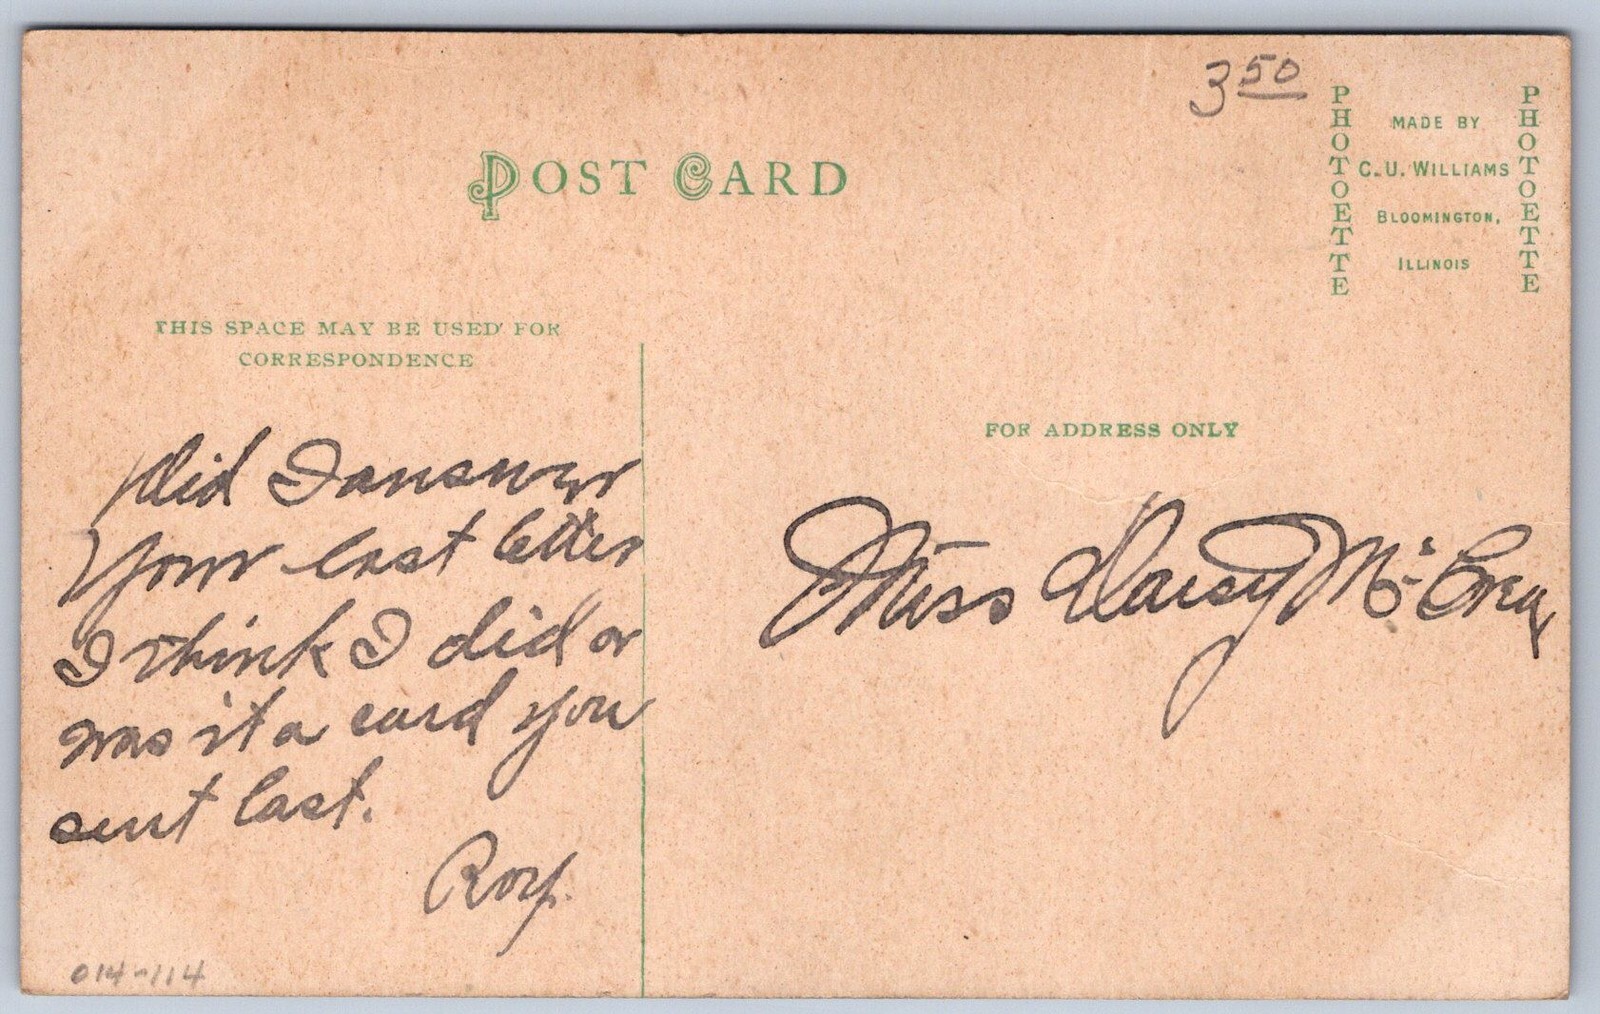 3 50
POST CARD
PHOTOETTE
MADE BY
C.U. WILLIAMS
BLOOMINGTON,
ILLINOIS
PHOTOETTE
THIS SPACE MAY BE USED FOR
CORRESPONDENCE
FOR ADDRESS ONLY
did I answer
your last letter
I think I did or
was it a card you
sent last.
Roy.
Miss Daisy Mc Cray
014-114